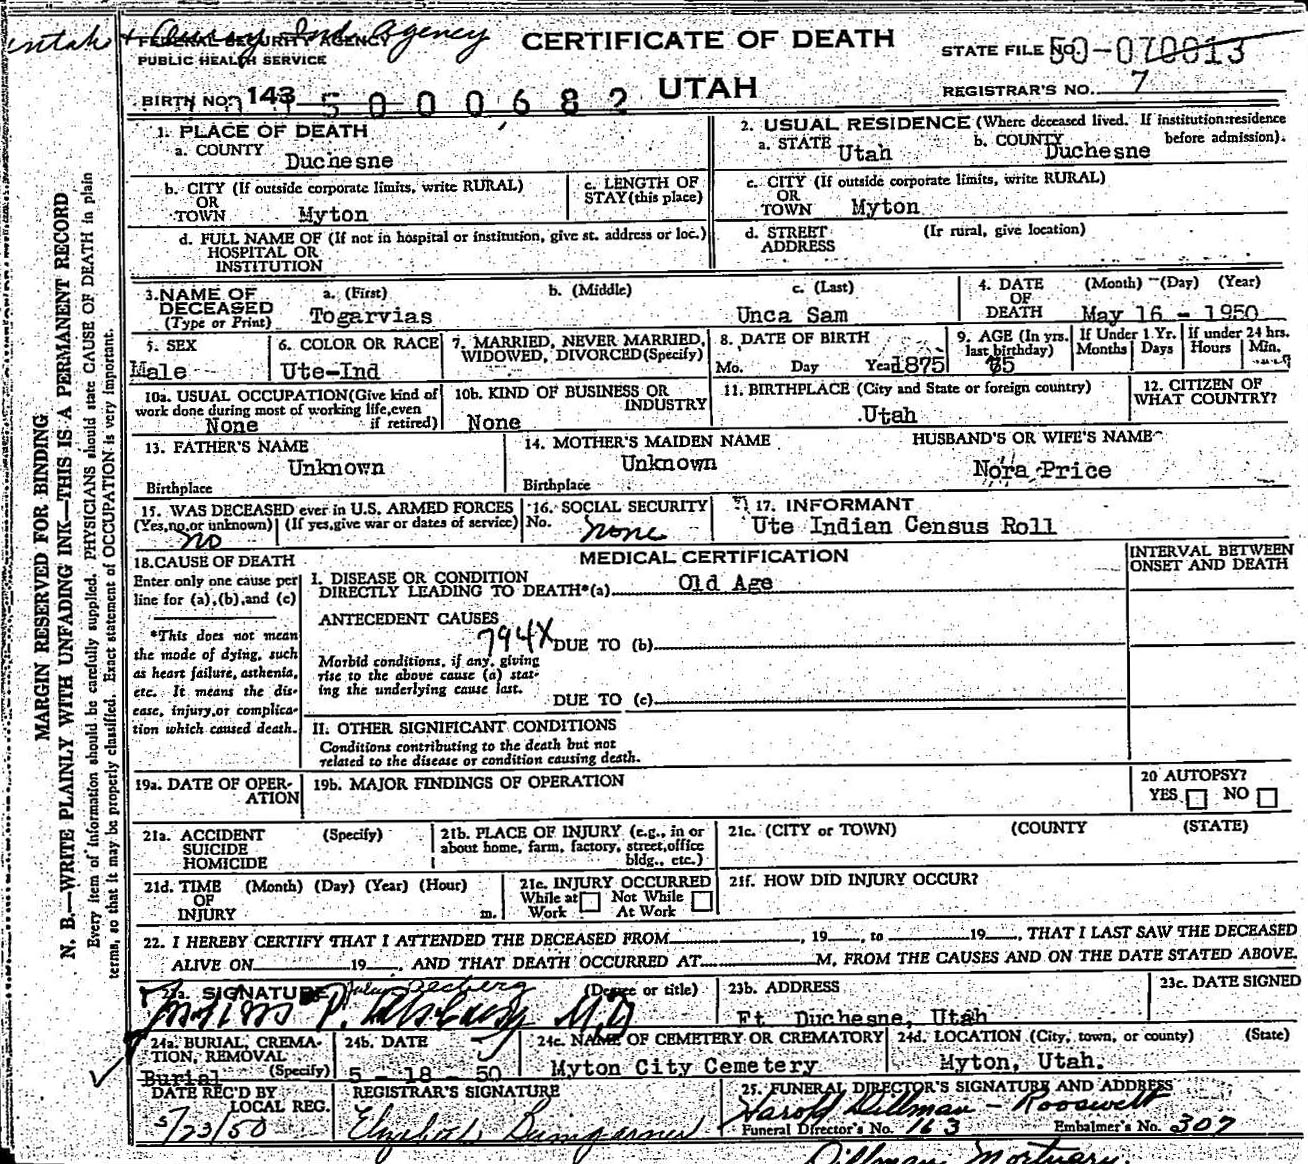 & Ouray Ind Agency
FEDERAL SECURITY AGENCY
PUBLIC HEALTH SERVICE
CERTIFICATE OF DEATH
UTAH
STATE FILE NO. 50-070013
REGISTRAR'S NO. 7
BIRTH NO. 143 5 0 0 0 6 8 2
1. PLACE OF DEATH
a. COUNTY Duchesne
2. USUAL RESIDENCE (Where deceased lived. If institution:residence before admission).
a. STATE Utah b. COUNTY Duchesne
b. CITY (If outside corporate limits, write RURAL)
OR
TOWN Myton
c. LENGTH OF
STAY (this place)
c. CITY (If outside corporate limits, write RURAL)
OR
TOWN Myton
d. FULL NAME OF (If not in hospital or institution, give st. address or loc.)
HOSPITAL OR
INSTITUTION
d. STREET (If rural, give location)
ADDRESS
3. NAME OF DECEASED (Type or Print)
a. (First) b. (Middle) c. (Last)
Togarvias Unca Sam
4. DATE OF DEATH (Month) (Day) (Year)
May 16 - 1950
5. SEX
Male
6. COLOR OR RACE
Ute-Ind
7. MARRIED, NEVER MARRIED,
WIDOWED, DIVORCED (Specify)
8. DATE OF BIRTH
Mo. Day Year 1875
9. AGE (In yrs. last birthday) 75
If Under 1 Yr. Months Days
If under 24 hrs. Hours Min.
10a. USUAL OCCUPATION (Give kind of
work done during most of working life, even
if retired) None
10b. KIND OF BUSINESS OR
INDUSTRY
None
11. BIRTHPLACE (City and State or foreign country)
Utah
12. CITIZEN OF
WHAT COUNTRY?
13. FATHER'S NAME
Unknown
Birthplace
14. MOTHER'S MAIDEN NAME
Unknown
Birthplace
HUSBAND'S OR WIFE'S NAME
Nora Price
15. WAS DECEASED ever in U.S. ARMED FORCES
(Yes, no, or unknown) (If yes, give war or dates of service)
no
16. SOCIAL SECURITY
No. none
17. INFORMANT
Ute Indian Census Roll
18. CAUSE OF DEATH
Enter only one cause per
line for (a), (b), and (c)
*This does not mean
the mode of dying, such
as heart failure, asthenia,
etc. It means the dis-
ease, injury, or complica-
tion which caused death.
MEDICAL CERTIFICATION
I. DISEASE OR CONDITION
DIRECTLY LEADING TO DEATH*(a) Old Age
ANTECEDENT CAUSES
794X DUE TO (b)
Morbid conditions, if any, giving
rise to the above cause (a) stat-
ing the underlying cause last.
DUE TO (c)
II. OTHER SIGNIFICANT CONDITIONS
Conditions contributing to the death but not
related to the disease or condition causing death.
INTERVAL BETWEEN
ONSET AND DEATH
19a. DATE OF OPER-
ATION
19b. MAJOR FINDINGS OF OPERATION
20 AUTOPSY?
YES NO
21a. ACCIDENT (Specify)
SUICIDE
HOMICIDE
21b. PLACE OF INJURY (e.g., in or
about home, farm, factory, street, office
bldg., etc.)
21c. (CITY or TOWN) (COUNTY (STATE)
21d. TIME (Month) (Day) (Year) (Hour)
OF
INJURY m.
21e. INJURY OCCURRED
While at Not While
Work At Work
21f. HOW DID INJURY OCCUR?
22. I HEREBY CERTIFY THAT I ATTENDED THE DECEASED FROM , 19 , to 19 , THAT I LAST SAW THE DECEASED
ALIVE ON 19 , AND THAT DEATH OCCURRED AT M, FROM THE CAUSES AND ON THE DATE STATED ABOVE.
23a. SIGNATURE (Degree or title)
M.D
23b. ADDRESS
Ft. Duchesne, Utah
23c. DATE SIGNED
24a. BURIAL, CREMA-
TION, REMOVAL
(Specify)
Burial
24b. DATE
5 - 18 - 50
24c. NAME OF CEMETERY OR CREMATORY
Myton City Cemetery
24d. LOCATION (City, town, or county) (State)
Myton, Utah.
DATE REC'D BY
LOCAL REG.
5/23/50
REGISTRAR'S SIGNATURE
Elizabeth Bumgarner
25. FUNERAL DIRECTOR'S SIGNATURE AND ADDRESS
Harold Dillman - Roosevelt
Funeral Director's No. 163 Embalmer's No. 307
Dillman Mortuary
MARGIN RESERVED FOR BINDING
N. B.—WRITE PLAINLY WITH UNFADING INK—THIS IS A PERMANENT RECORD
Every item of information should be carefully supplied. PHYSICIANS should state CAUSE OF DEATH in plain
terms, so that it may be properly classified. Exact statement of OCCUPATION is very important.